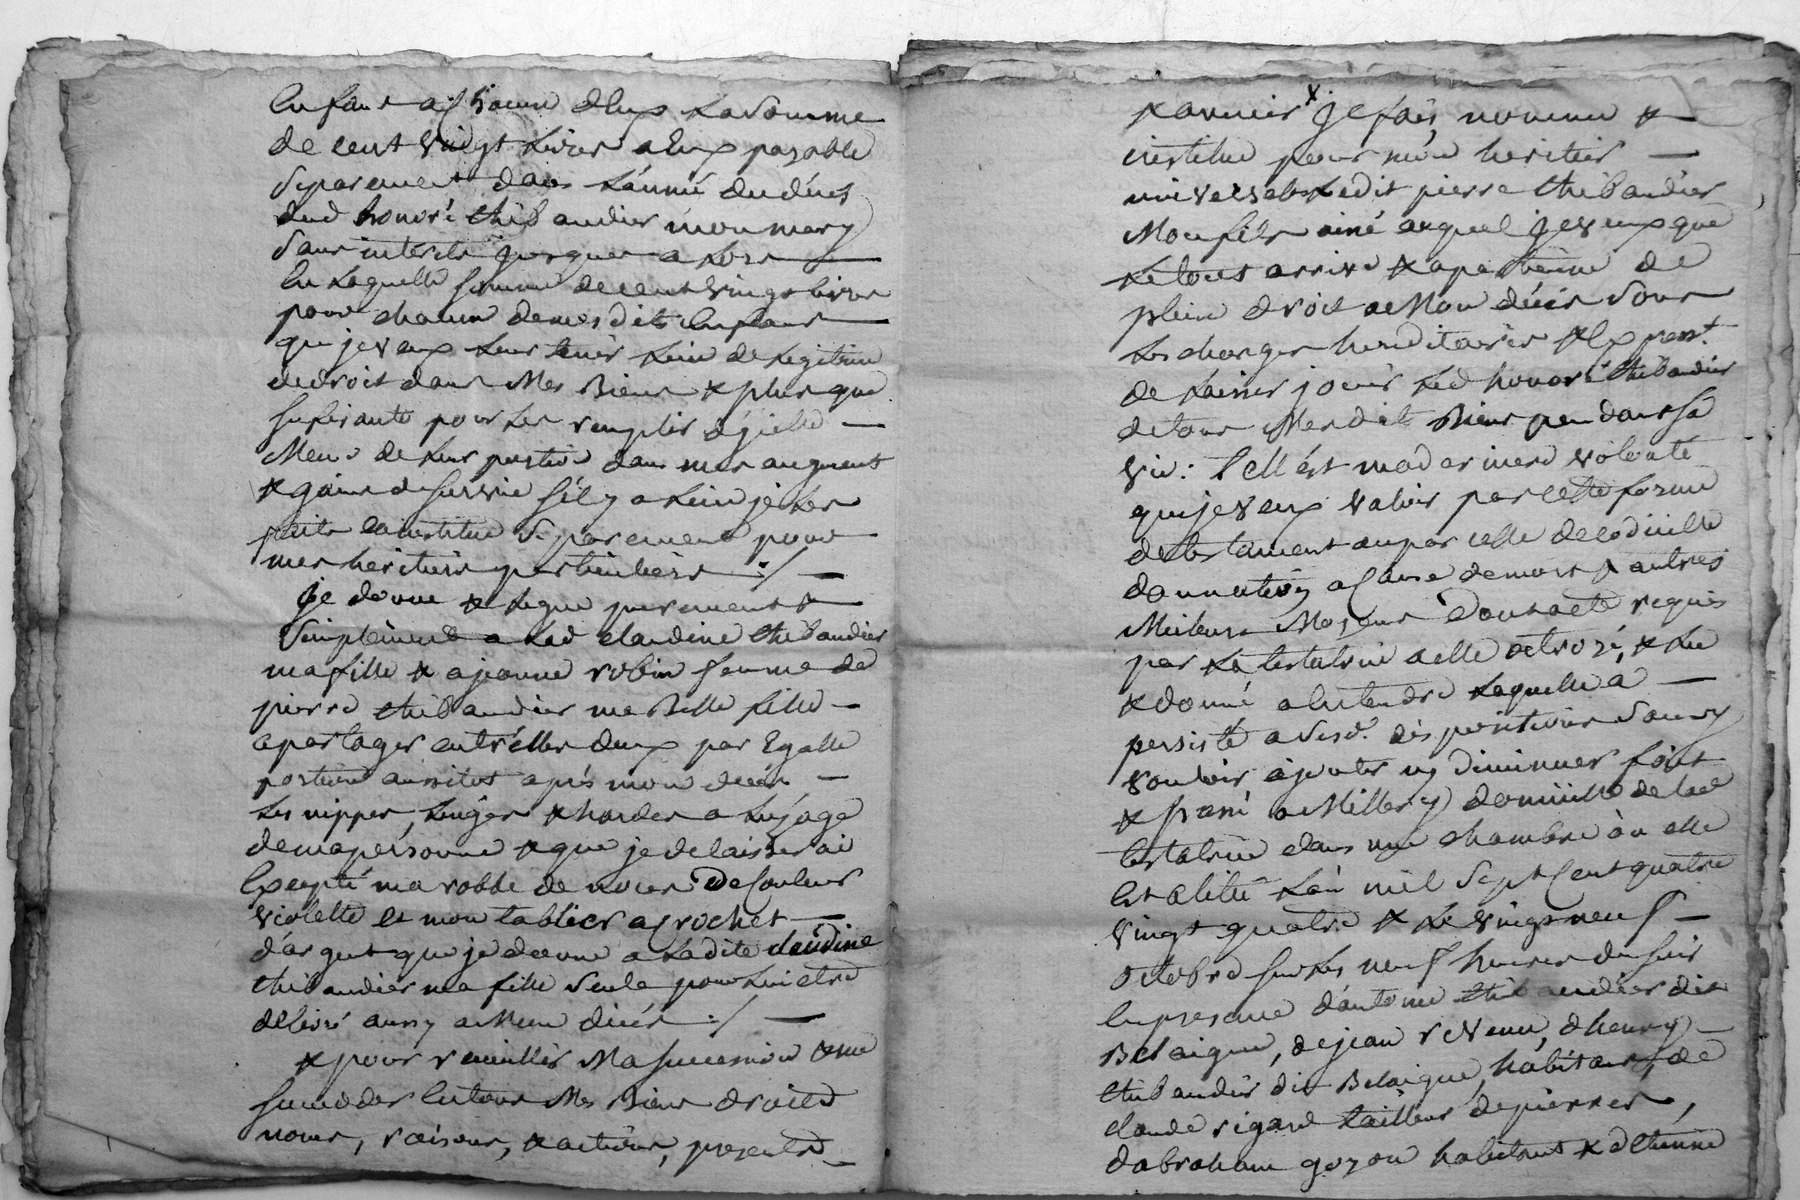 Enfans a chacun d'eux la somme
de cent vingt livres a Eux payable
separement dans l'année du décès
dud honoré thibaudier mon mary
sans intérêts jusques a lors
En laquelle somme de cent vingt livres
pour chacun de mesdits Enfans
que je veux leur tenir lieu de legitime
de droit dans Mes Biens & plus que
sufisante pour les remplir d'icelle
Meme de leur portion dans mes augment
& gains de survie s'il y a lieu je les
faits & institue separement pour
mes heritiers particuliers :/
je donne & legue purement &
simplement a lad claudine thibaudier
ma fille & a jeanne robin femme de
pierre thibaudier ma Belle fille
a partager entr'elles deux par Egalle
portion aussitot après mon décès
les nippes, linges & hardes a l'usage
de ma personne & que je delaisserai
Excepté ma robbe de noces de Couleur
violette et mon tablier a crochet
d'argent que je donne a ladite claudine
thibaudier ma fille seule pour lui etre
delivré aussy a Mon décès :/
& pour recueillir Ma succession & me
succeder En tous Mes Biens droits
noms, raisons, & actions, presents
& avenir je fais, nomme &
institue pour mon heritier
universel ledit pierre thibaudier
Mon fils ainé auquel je veux que
le tout arrive & apartienne de
plein droit a Mon décès sous
les charges hereditaires & Expresst.
de laisser jouir led honoré thibaudier
de tous Mesdits Biens pendant sa
vie : Telle est ma derniere volonté
que je veux valoir par cette forme
de testament ou par celle de codicille
donnation a Cause de mort & autres
Meilleurs Moyens dont acte requis
par la testatrice a elle octroyé, & lu
& donné a Entendre laquelle a
persisté a sesd. dispositions sans y
vouloir ajouter ny diminuer fait
& passé a Millery domicille de lad
testatrice dans une chambre où elle
Est alitée l'an mil sept Cent quatre
vingt quatre & le vingt neuf
octobre sur les neuf heures du soir
En presence d'antoine thibaudier dit
Belaigue, de jean revenu, d'henry
thibaudier dit Belaigue, habitans, de
claude rigard tailleur de pierres,
d'abraham goyon habitant & d'Etienne